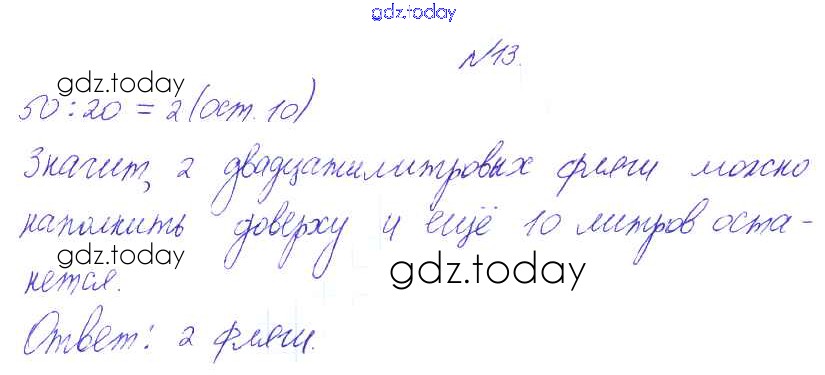 gdz.today
№13.
gdz.today
50:20=2(ост.10)
Значит, 2 двадцатилитровых фляги можно
наполнить доверху и ещё 10 литров оста-
нется.
gdz.today
Ответ: 2 фляги.